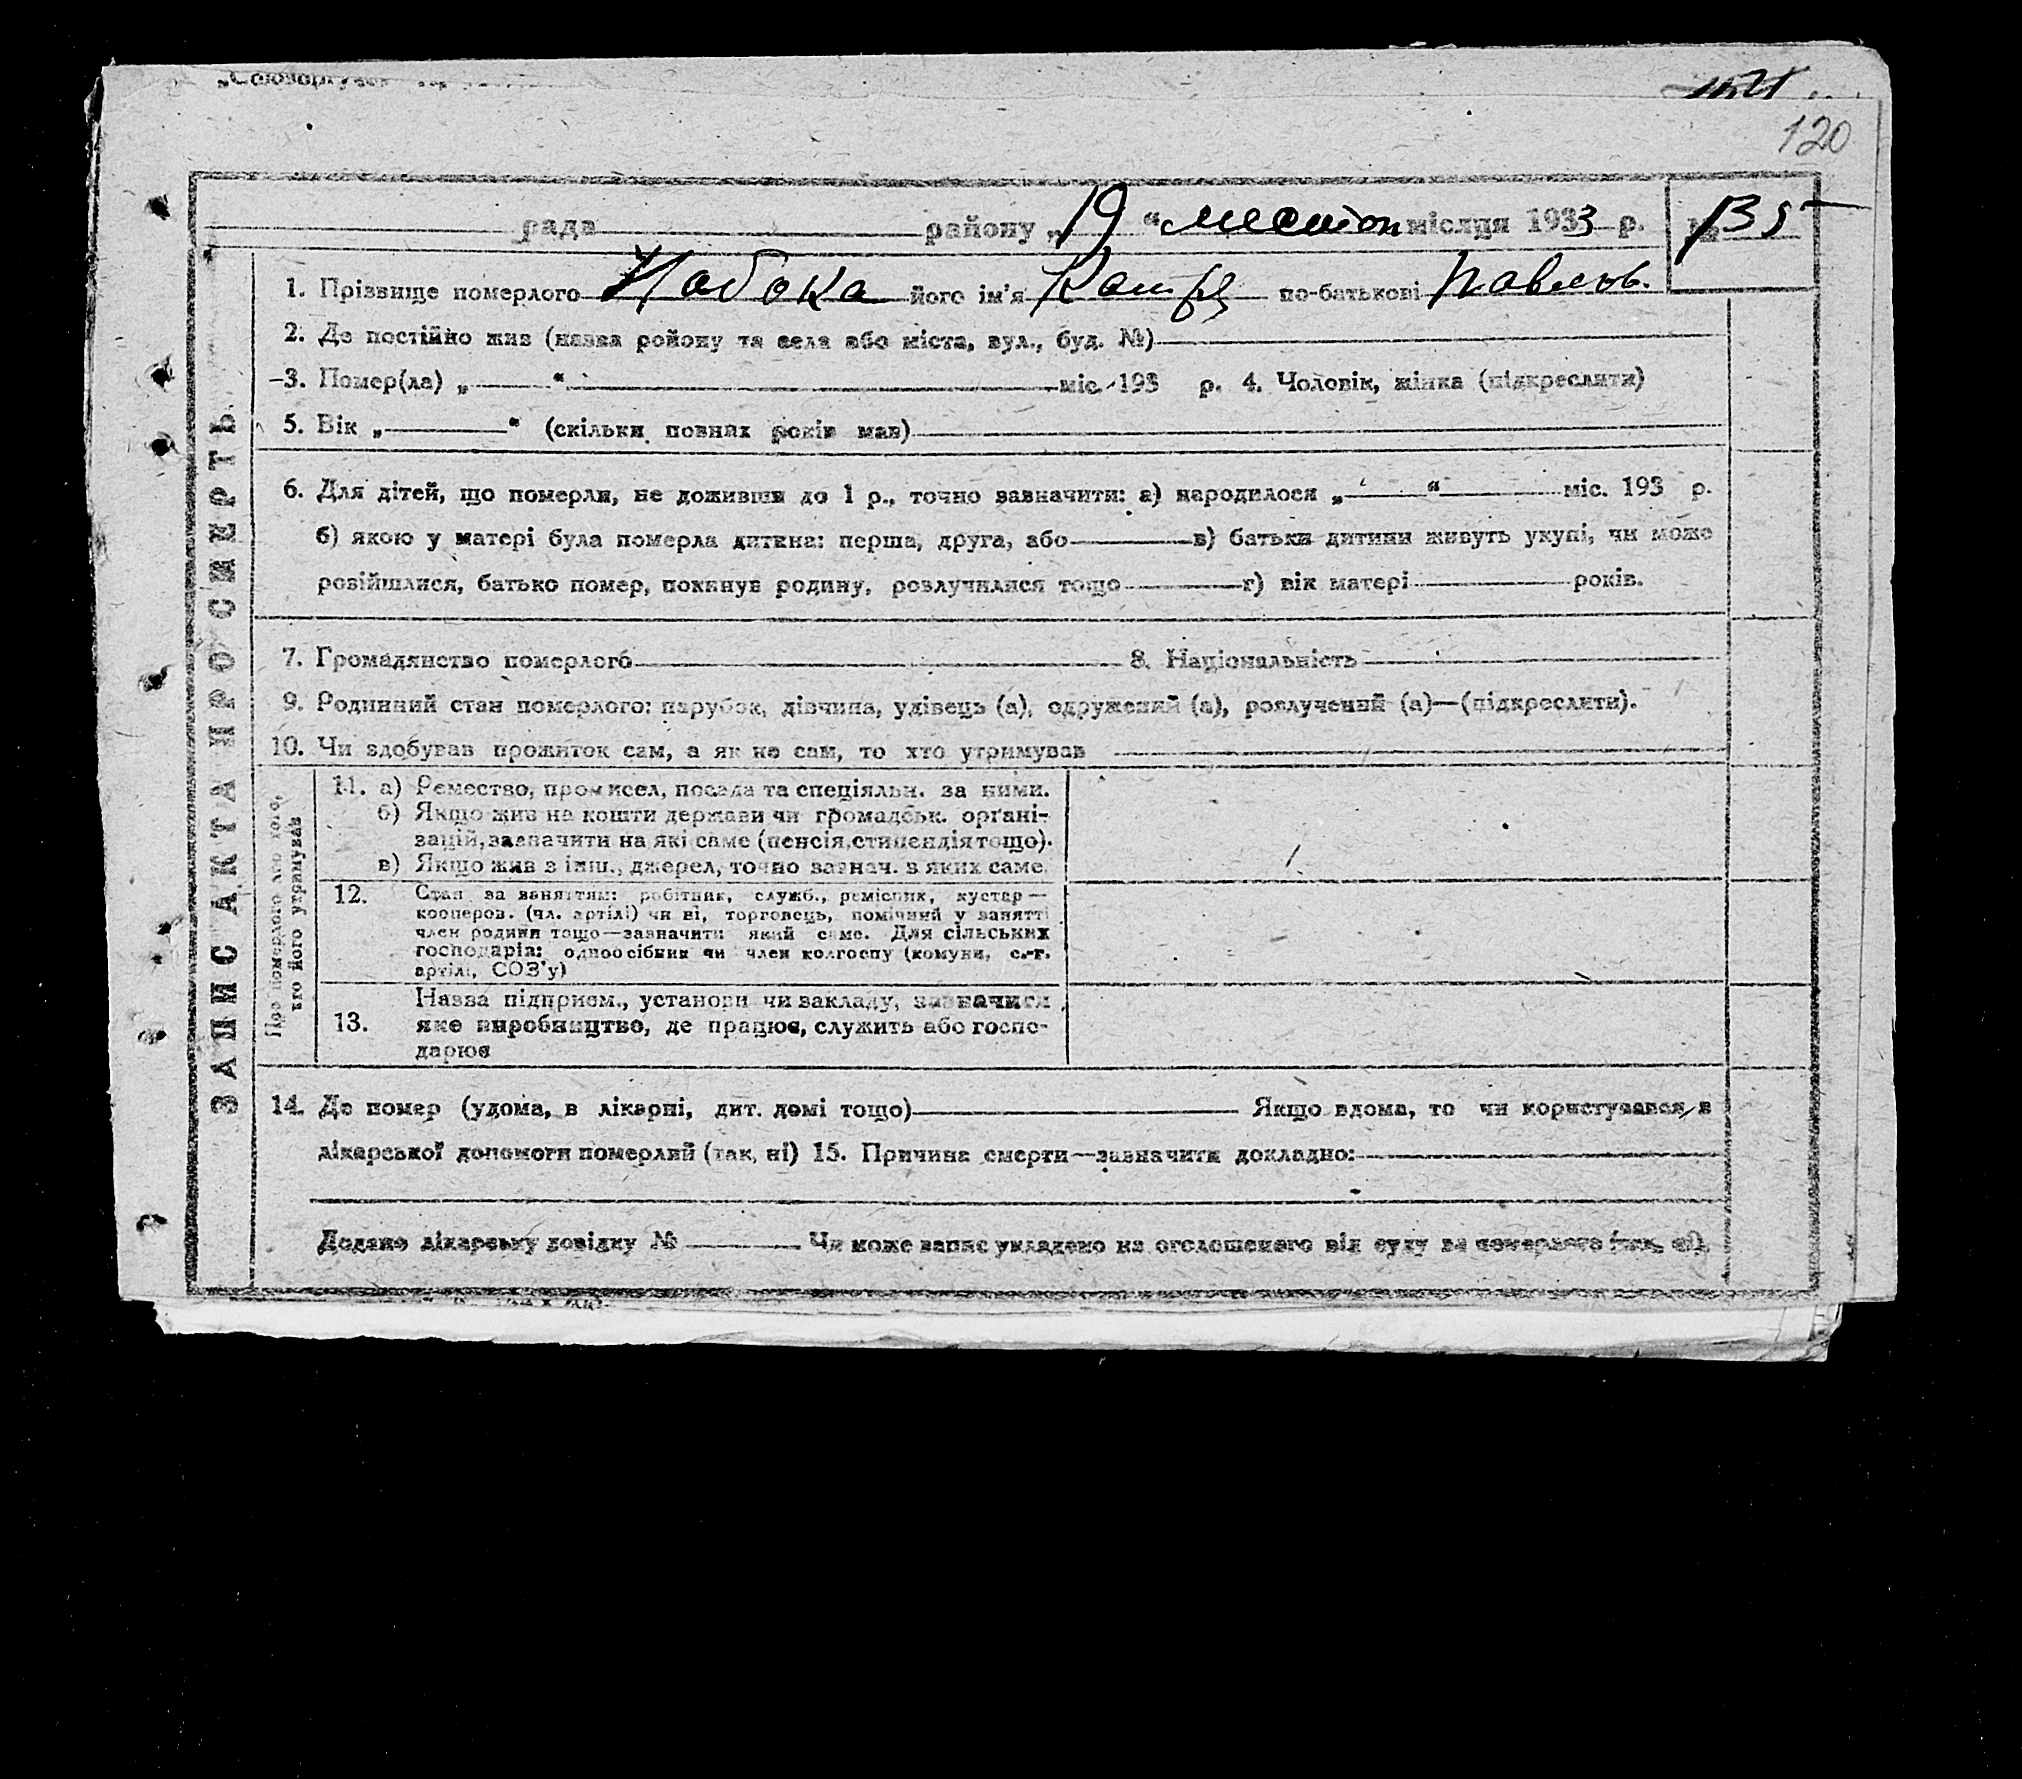 120
рада району „19“ місяця 1933 р. № 135
1. Прізвище померлого Набока його ім'я по-батькові Павлов.
2. Де постійно жив (назва району та села або міста, вул., буд. №)
3. Помер(ла) „ “ міс. 193 р. 4. Чоловік, жінка (підкреслити)
5. Вік „ “ (скільки повних років мав)
6. Для дітей, що померли, не доживши до 1 р., точно зазначити: а) народилося „ “ міс. 193 р.
б) якою у матері була померла дитина: перша, друга, або в) батьки дитини живуть укупі, чи може
розійшлися, батько помер, покинув родину, розлучилися тощо г) вік матері років.
7. Громадянство померлого 8. Національність
9. Родинний стан померлого: парубок, дівчина, удівець (а), одружений (а), розлучений (а)—(підкреслити).
10. Чи здобував прожиток сам, а як не сам, то хто утримував
11. а) Ремество, промисел, посада та спеціяльн. за ними.
б) Якщо жив на кошти держави чи громадськ. органі-
зацій, зазначити на які саме (пенсія, стипендія тощо).
в) Якщо жив з інш., джерел, точно зазнач. з яких саме.
12. Стан за заняттям: робітник, служб., ремісник, кустар—
кооперов. (чл. артілі) чи ні, торговець, помічний у занятті
член родини тощо—зазначити який саме. Для сільських
господарів: одноосібник чи член колгоспу (комуни, с.-г.
артілі, СОЗ'у)
Назва підприєм., установи чи закладу, зазначити
13. яке виробництво, де працює, служить або госпо-
дарює
14. Де помер (удома, в лікарні, дит. домі тощо) Якщо вдома, то чи користувався з
лікарської допомоги померлий (так, ні) 15. Причина смерти—зазначити докладно:
Додано лікарську довідку № Чи може запис укладено на оголошеного від суду за померлого (так, ні).
ЗАПИС АКТА ПРО СМЕРТЬ
Про померлого або того,
хто його утримував